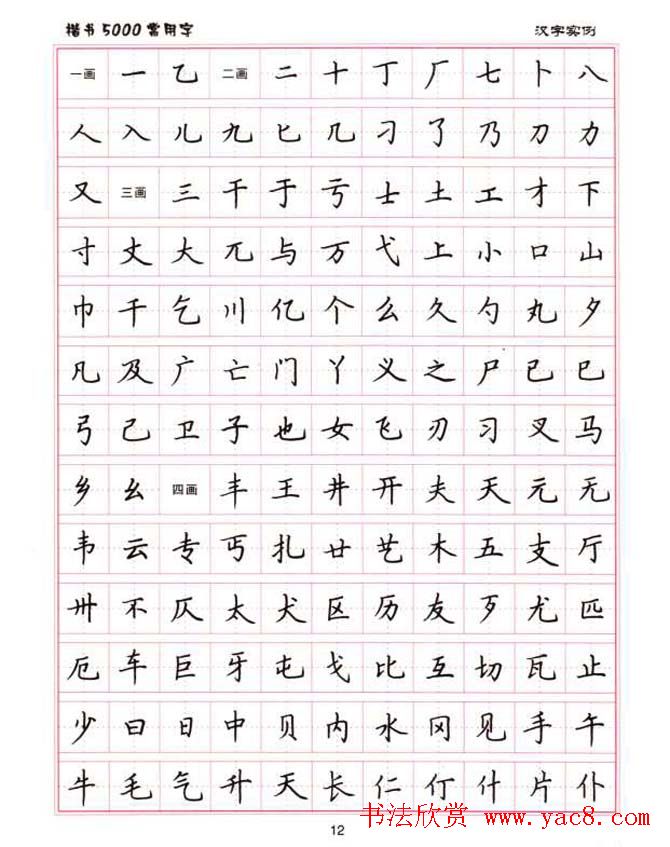 楷书5000常用字 汉字实例
一画 一 乙 二画 二 十 丁 厂 七 卜 八
人 入 儿 九 匕 几 刁 了 乃 刀 力
又 三画 三 干 于 亏 士 土 工 才 下
寸 丈 大 兀 与 万 弋 上 小 口 山
巾 千 乞 川 亿 个 么 久 勺 丸 夕
凡 及 广 亡 门 丫 义 之 尸 已 巳
弓 己 卫 子 也 女 飞 刃 习 叉 马
乡 幺 四画 丰 王 井 开 夫 天 元 无
韦 云 专 丐 扎 廿 艺 木 五 支 厅
卅 不 仄 太 犬 区 历 友 歹 尤 匹
厄 车 巨 牙 屯 戈 比 互 切 瓦 止
少 曰 日 中 贝 内 水 冈 见 手 午
牛 毛 气 升 夭 长 仁 仃 什 片 仆
12
书法欣赏 www.yac8.com